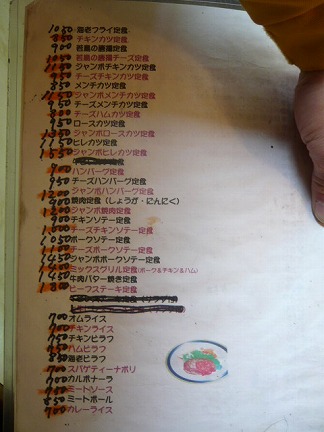 1050 海老フライ定食
850 チキンカツ定食
900 若鳥の唐揚定食
1050 若鳥の唐揚チーズ定食
1050 ジャンボチキンカツ定食
950 チーズチキンカツ定食
850 メンチカツ定食
1150 ジャンボメンチカツ定食
950 チーズメンチカツ定食
800 チーズハムカツ定食
950 ロースカツ定食
1350 ジャンボロースカツ定食
1150 ヒレカツ定食
1550 ジャンボヒレカツ定食
700 ハンバーグ定食
950 チーズハンバーグ定食
1200 ジャンボハンバーグ定食
900 焼肉定食(しょうが・にんにく)
1200 ジャンボ焼肉定食
900 チキンソテー定食
1000 チーズチキンソテー定食
1050 ポークソテー定食
1100 チーズポークソテー定食
1450 ジャンボポークソテー定食
1400 ミックスグリル定食(ポーク&チキン&ハム)
1450 牛肉バター焼き定食
1800 ビーフステーキ定食
700 オムライス
700 チキンライス
750 チキンピラフ
750 ハムピラフ
850 海老ピラフ
700 スパゲティーナポリ
700 カルボナーラ
750 ミートソース
850 ミートボール
700 カレーライス